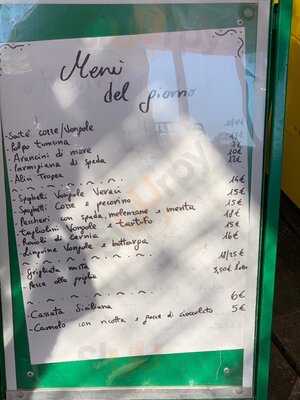 Menù
del giorno
- Sauté cozze/Vongole
- Polpo
- Arancini di mare
- Parmigiana di spada 10€
- Alici Tropea 12€
- Spaghetti Vongole Veraci 14€
- Spaghetti Cozze e pecorino 15€
- Paccheri con spada, melenzane e menta 15€
- Tagliolini Vongole e tartufo 18€
- Ravioli di cernia 15€
- Linguine Vongole e bottarga 16€
- Grigliata mista
- Pesce alla griglia
- Cassata Siciliana 6€
- Cannolo con ricotta e gocce di cioccolato 5€